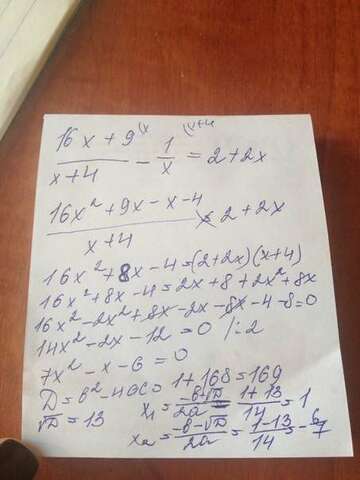 (x (x+4
(16x + 9)/(x+4) - 1/x = 2 + 2x
(16x² + 9x - x - 4)/(x+4) = 2 + 2x
16x² + 8x - 4 = (2+2x)(x+4)
16x² + 8x - 4 = 2x + 8 + 2x² + 8x
16x² - 2x² + 8x - 2x - 8x - 4 - 8 = 0
14x² - 2x - 12 = 0 |:2
7x² - x - 6 = 0
D = b² - 4ac = 1 + 168 = 169
√D = 13 x₁ = (-b+√D)/2a = (1+13)/14 = 1
x₂ = (-b-√D)/2a = (1-13)/14 = -6/7